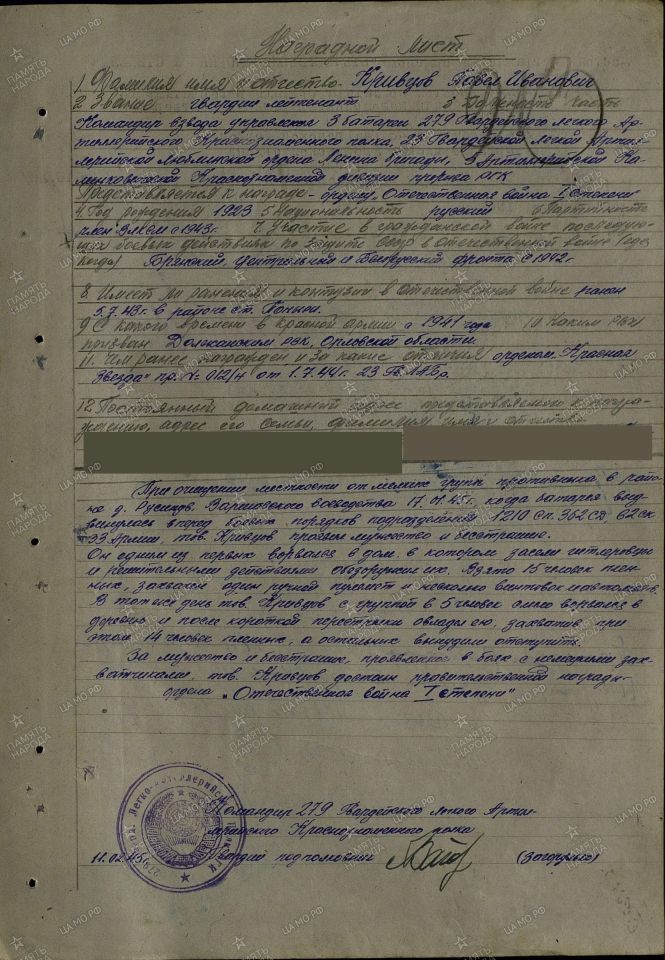 Наградной лист
1. Фамилия имя и отчество - Кривцов Павел Иванович
2. Звание гвардии лейтенант 3 Должность часть
Командир взвода управления 3 батареи 279 Гвардейского легкого Ар-
тиллерийского Краснознаменного полка, 23 Гвардейской легкой Артил-
лерийской Люблинской ордена Ленина бригады, 3 Артиллерийской
Краснознаменной дивизии прорыва РГК
Представляется к награде - ордену Отечественная война I степени
4. Год рождения 1923 5 Национальность русский 6 Партийность
член ВЛКСМ с 1943 г. 7. Участие в гражданской войне последую-
щих боевых действиях по защите СССР в отечественной войне (где,
когда) Брянский, Центральный и Белорусский фронта с 1942 г.
8. Имеет ли ранения и контузии в отечественной войне ранен
5.7.43 г. в районе ст. Поныри.
9 С какого времени в Красной армии с 1941 года 10 Каким РВК
призван РВК, Орловской области.
11. Чем ранее награжден и за какие отличия орденом "Красная
Звезда" пр. № 012/н от 1.7.44 г. 23 Гв. ЛАБр.
12 Постоянный домашний адрес представляемого к награ-
ждению, адрес его семьи, фамилия имя и отчество
При очищении местности от мелких групп противника в райо-
не д. Варшавского воеводства 17.01.45 г., когда батарея выд-
винулась вперед боевых порядков подразделений 1210 сп. 362 СД.
33 Армии, тов. Кривцов проявил мужество и бесстрашие.
Он одним из первых ворвался в дом, в котором засели гитлеровцы
и решительными действиями обезоружил их. Взято 15 человек плен-
ных, захвачен один ручной пулемет и несколько винтовок и автоматов.
В тот же день тов. Кривцов с группой в 5 человек смело ворвался в
деревню и после короткой перестрелки овладел ею, захватив при
этом 14 человек пленных, а остальных вынудил отступить.
За мужество и бесстрашие, проявленное в боях с немецкими зах-
ватчиками, тов. Кривцов достоин правительственной награды-
ордена "Отечественная война I степени"
Командир 279 Гвардейского легкого Артил-
лерийского Краснознаменного полка
11.02.45 г. Гвардии подполковник
ПАМЯТЬ НАРОДА
ЦА МО РФ